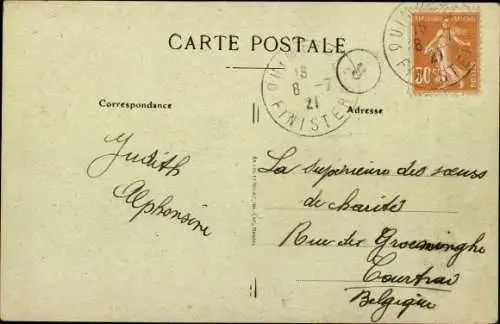 CARTE POSTALE
Correspondance
Adresse
18
8 - 7
21
FINISTERE
18
8 - 7
21
FINISTERE
30c
Judith
Alphonsine
La supérieure des soeurs
de charité
Rue der Groeninghe
Courtrai
Belgique